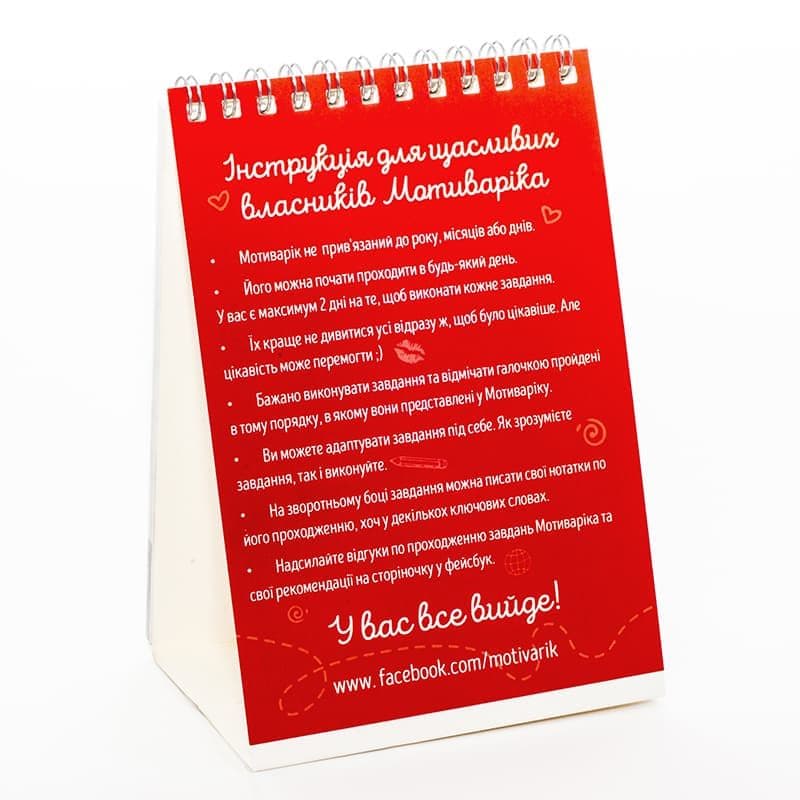 Інструкція для щасливих
власників Мотиваріка
• Мотиварік не прив'язаний до року, місяців або днів.
• Його можна почати проходити в будь-який день.
У вас є максимум 2 дні на те, щоб виконати кожне завдання.
• Їх краще не дивитися усі відразу ж, щоб було цікавіше. Але
цікавість може перемогти ;)
• Бажано виконувати завдання та відмічати галочкою пройдені
в тому порядку, в якому вони представлені у Мотиваріку.
• Ви можете адаптувати завдання під себе. Як зрозумієте
завдання, так і виконуйте.
• На зворотньому боці завдання можна писати свої нотатки по
його проходженню, хоч у декількох ключових словах.
• Надсилайте відгуки по проходженню завдань Мотиваріка та
свої рекомендації на сторіночку у фейсбук.
У вас все вийде!
www.facebook.com/motivarik